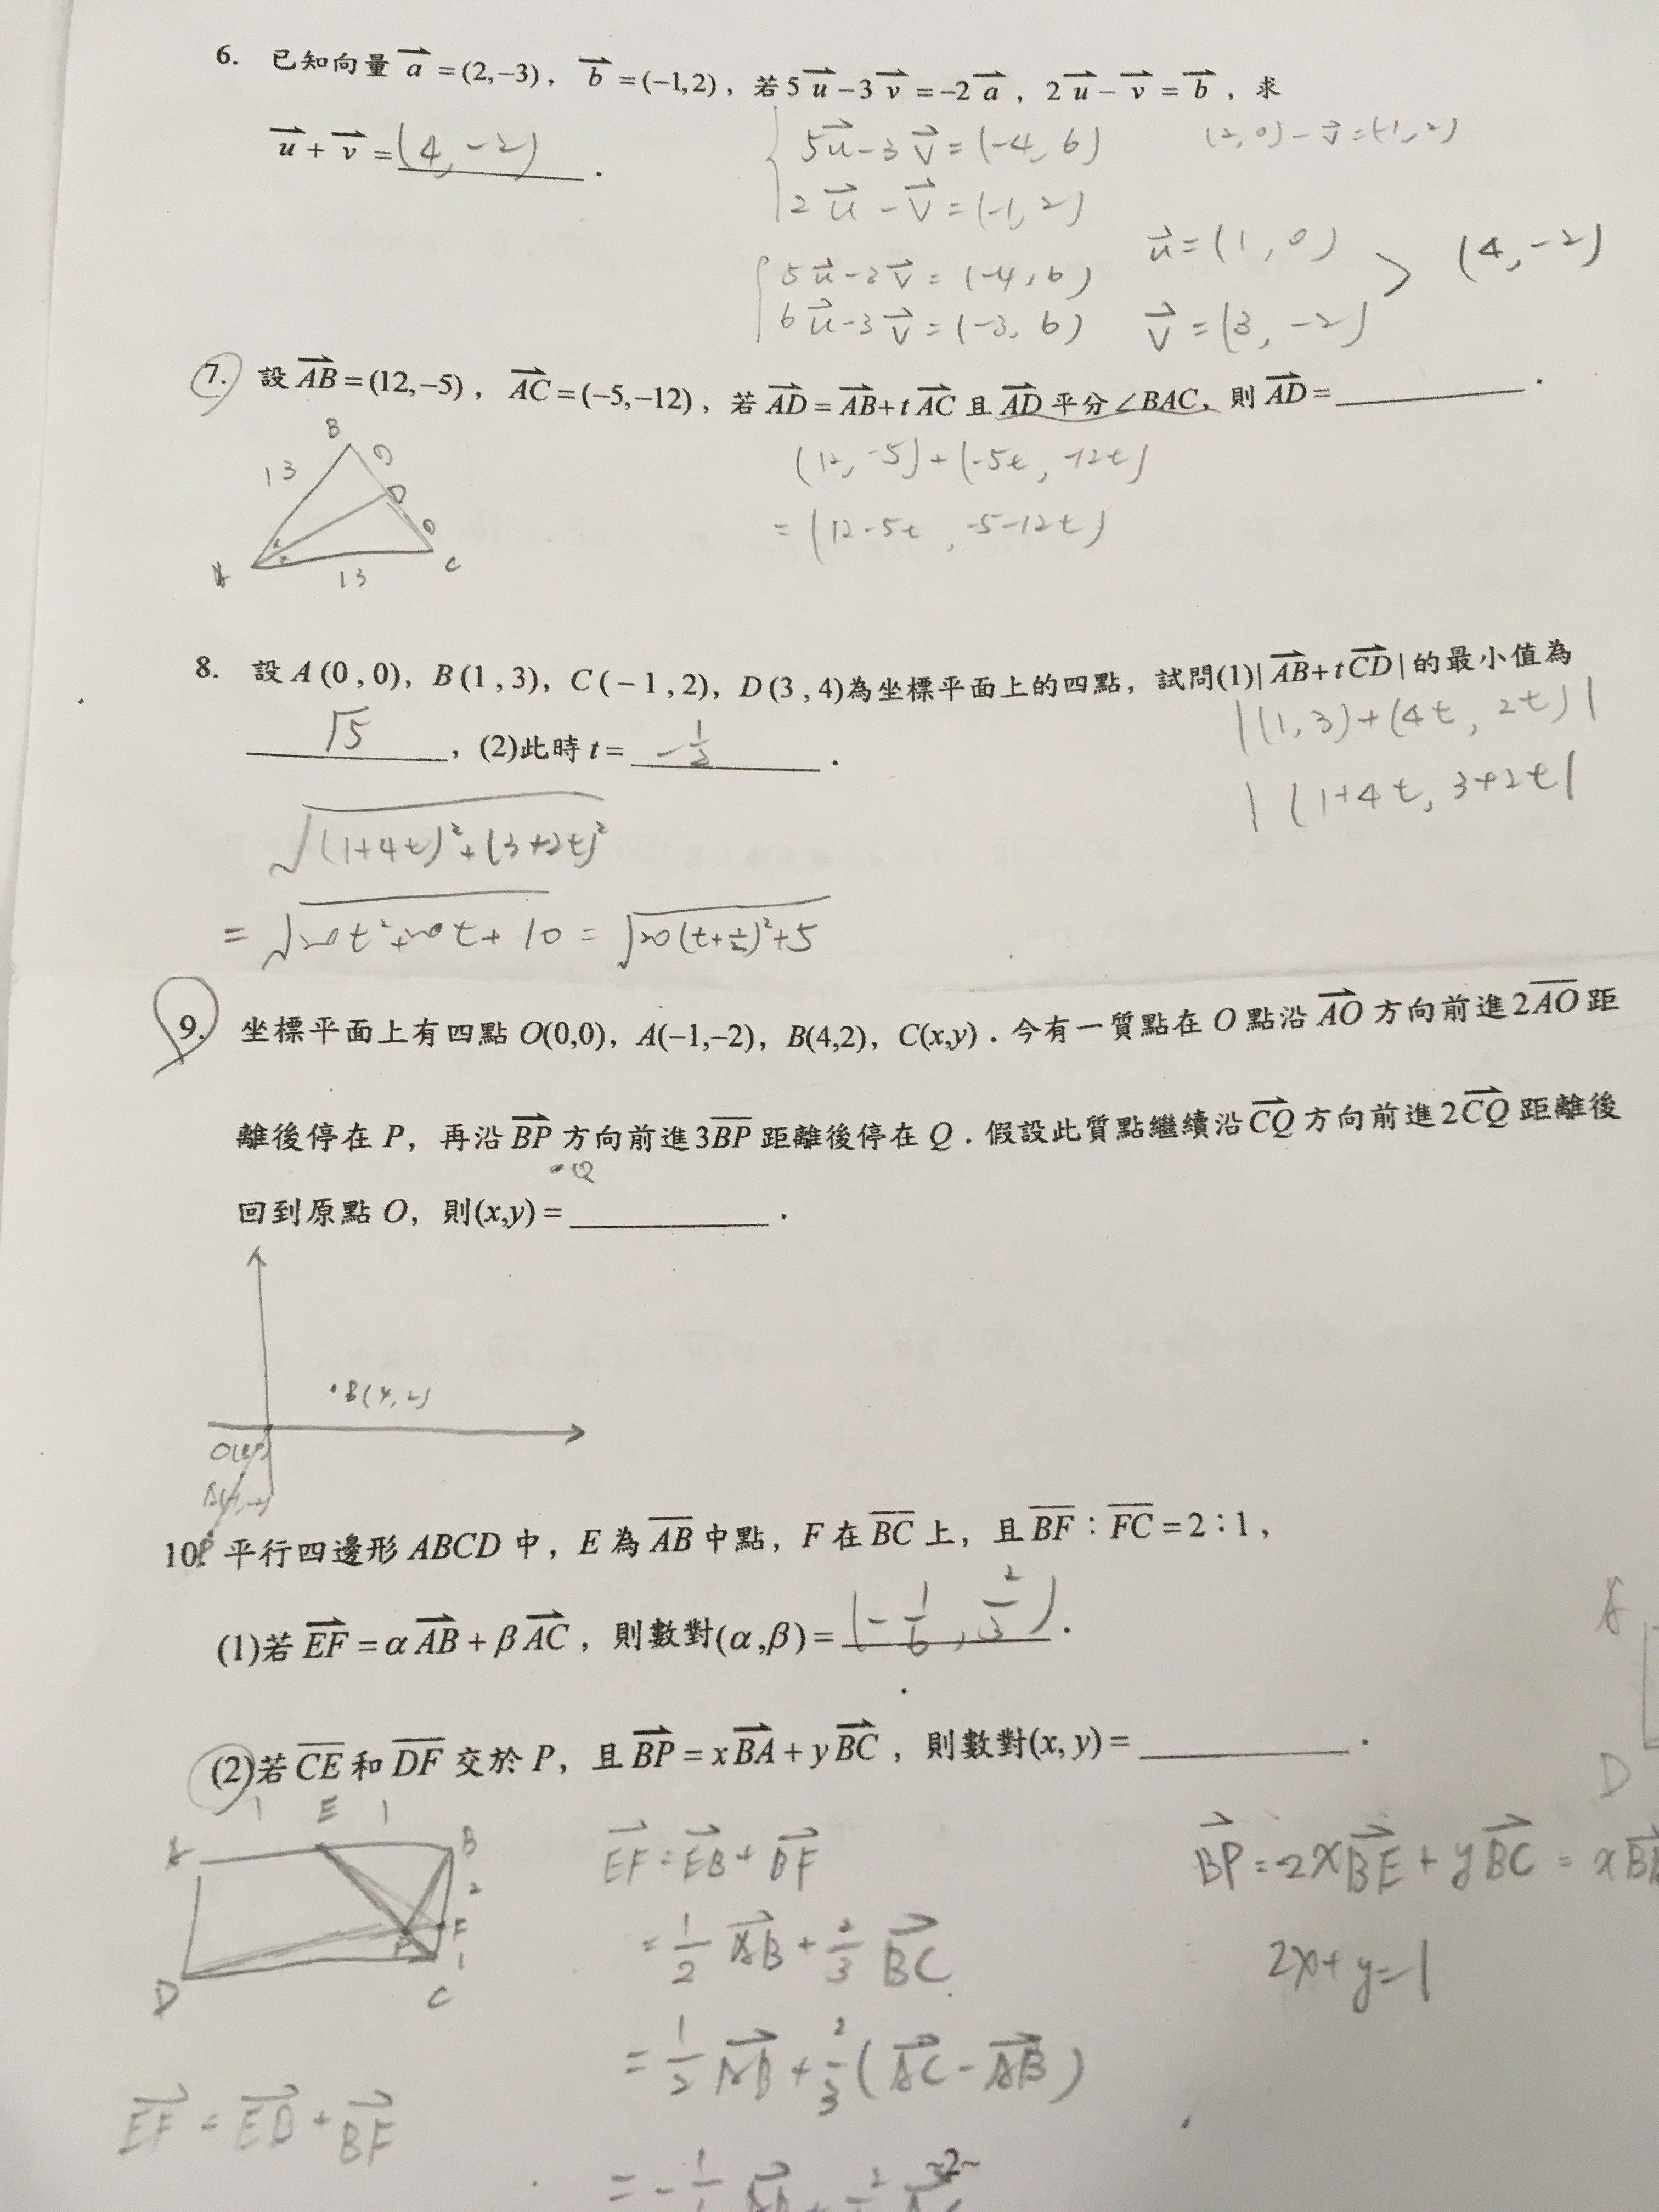 6. 已知向量 a⃗ =(2,−3)，b⃗ =(−1,2)，若5u⃗−3v⃗ =−2a⃗，2u⃗−v⃗ = b⃗，求
u⃗ + v⃗ = (4, −2) .
5u⃗−3v⃗ = (−4, 6)
(2,0)−v⃗=(−1,2)
2u⃗ − v⃗ = (−1, 2)
5u⃗−3v⃗ = (−4, 6)
u⃗ = (1, 0) > (4, −2)
6u⃗−3v⃗ = (−3, 6)
v⃗ = (3, −2)
7. 設 AB⃗ =(12,−5)，AC⃗ =(−5,−12)，若 AD⃗ = AB⃗ + t AC⃗ 且 AD⃗ 平分∠BAC，則 AD⃗ = ______ .
B
13
D
A
13
C
(12, −5) + (−5t, −12t)
= (12−5t, −5−12t)
8. 設 A (0 , 0)，B (1 , 3)，C (−1 , 2)，D (3 , 4)為坐標平面上的四點，試問(1)| AB⃗ + t CD⃗ | 的最小值為
√5 ，(2)此時 t = −1/2 .
|(1, 3)+(4t, 2t)|
|(1+4t, 3+2t|
√((1+4t)²+(3+2t)²
= √(20t²+20t+10) = √(20(t+1/2)²+5)
9. 坐標平面上有四點 O(0,0)，A(−1,−2)，B(4,2)，C(x,y)．今有一質點在 O 點沿 AO⃗ 方向前進 2A̅O̅ 距
離後停在 P，再沿 BP⃗ 方向前進 3B̅P̅ 距離後停在 Q．假設此質點繼續沿 CQ⃗ 方向前進 2CQ⃗ 距離後
•Q
回到原點 O，則(x,y) = ______ .
•B(4, 2)
O(0,0)
A(−1,−2)
P
10. 平行四邊形 ABCD 中，E 為 A̅B̅ 中點，F 在 B̅C̅ 上，且 B̅F̅：F̅C̅ = 2：1，
(1)若 EF⃗ = α AB⃗ + β AC⃗，則數對(α,β) = (−1/6, 2/3) .
(2)若 C̅E̅ 和 D̅F̅ 交於 P，且 BP⃗ = x BA⃗ + y BC⃗，則數對(x, y) = ______ .
A 1 E 1 B
2
F
P
1
D C
A
D
EF⃗ = EB⃗ + BF⃗
= 1/2 AB⃗ + 2/3 BC⃗
= 1/2 AB⃗ + 2/3 (AC⃗ − AB⃗)
BP⃗ = 2xBE⃗ + yBC⃗ = x
2x+y=1
EF⃗ = EB⃗ + BF⃗
~2~